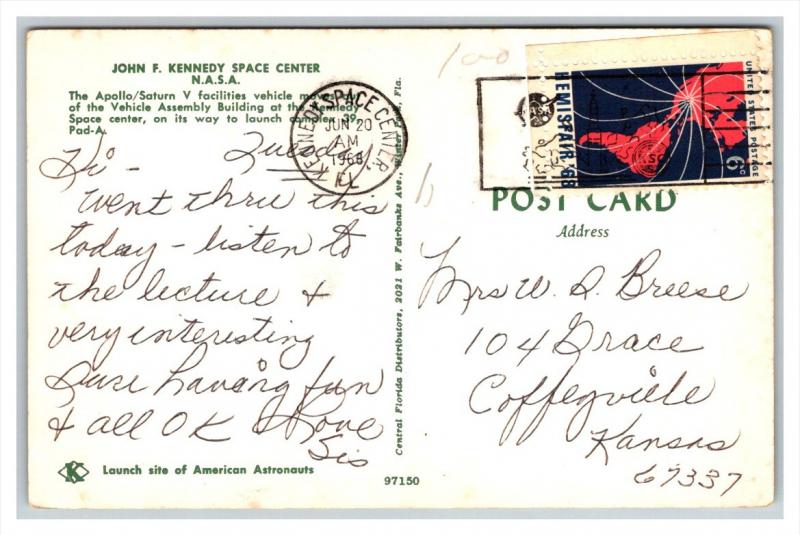 JOHN F. KENNEDY SPACE CENTER
N.A.S.A.
The Apollo/Saturn V facilities vehicle moves out
of the Vehicle Assembly Building at the Kennedy
Space center, on its way to launch complex 39,
Pad-A.
Hi -
Went thru this
today - listen to
the lecture &
very interesting
Sure having fun
& all OK Love
Sis
Launch site of American Astronauts
K
Central Florida Distributors, 2021 W. Fairbanks Ave., Winter Park, Fla.
97150
KENNEDY SPACE CENTER
JUN 20
AM
1968
FL
100
HEMISFAIR '68
UNITED STATES POSTAGE
6c
POST CARD
Address
Mrs W. D. Breese
104 Grace
Coffeyville
Kansas
67337